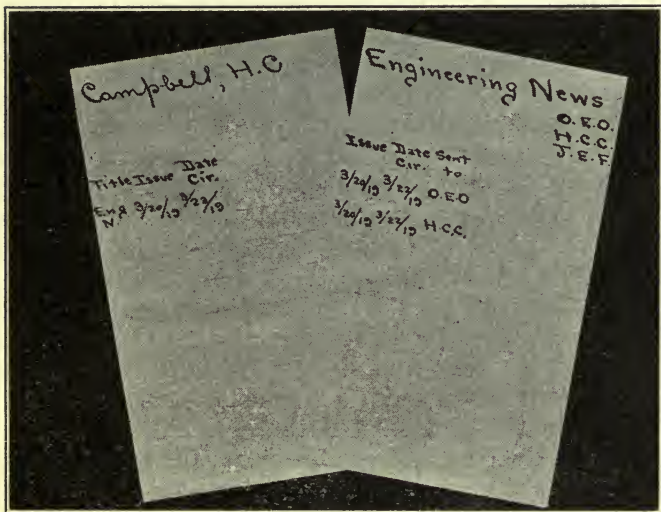 Campbell, H.C
Title Issue Date Cir.
Eng N. 3/20/19 3/22/19
Engineering News
O.E.O.
H.C.C.
J.E.F.
Issue Date Cir. Sent to
3/20/19 3/22/19 O.E.O
3/20/19 3/22/19 H.C.C.